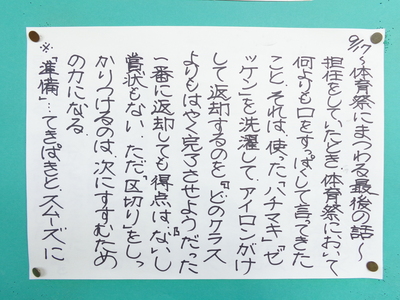 9/17~体育祭にまつわる最後の話~
担任をしていたとき、体育祭において
何よりも口をすっぱくして言ってきた
こと、それは、使った「ハチマキ」「ゼ
ッケン」を洗濯して、アイロンがけ
して返却するのを、『どのクラス
よりもはやく完了させよう』だった
一番に返却しても得点はないし
賞状もない。ただ、"区切り"をしっ
かりつけるのは、次にすすむため
の力になる。
※「準備」…てきぱきと、スムーズに